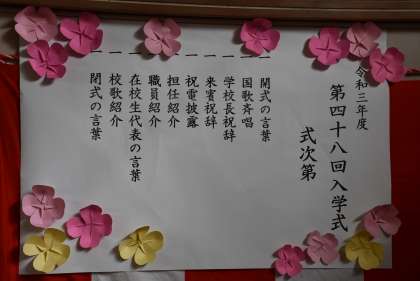 令和三年度
第四十八回入学式
式次第
一 開式の言葉
一 国歌斉唱
一 学校長祝辞
一 来賓祝辞
一 祝電披露
一 担任紹介
一 職員紹介
一 在校生代表の言葉
一 校歌紹介
一 閉式の言葉